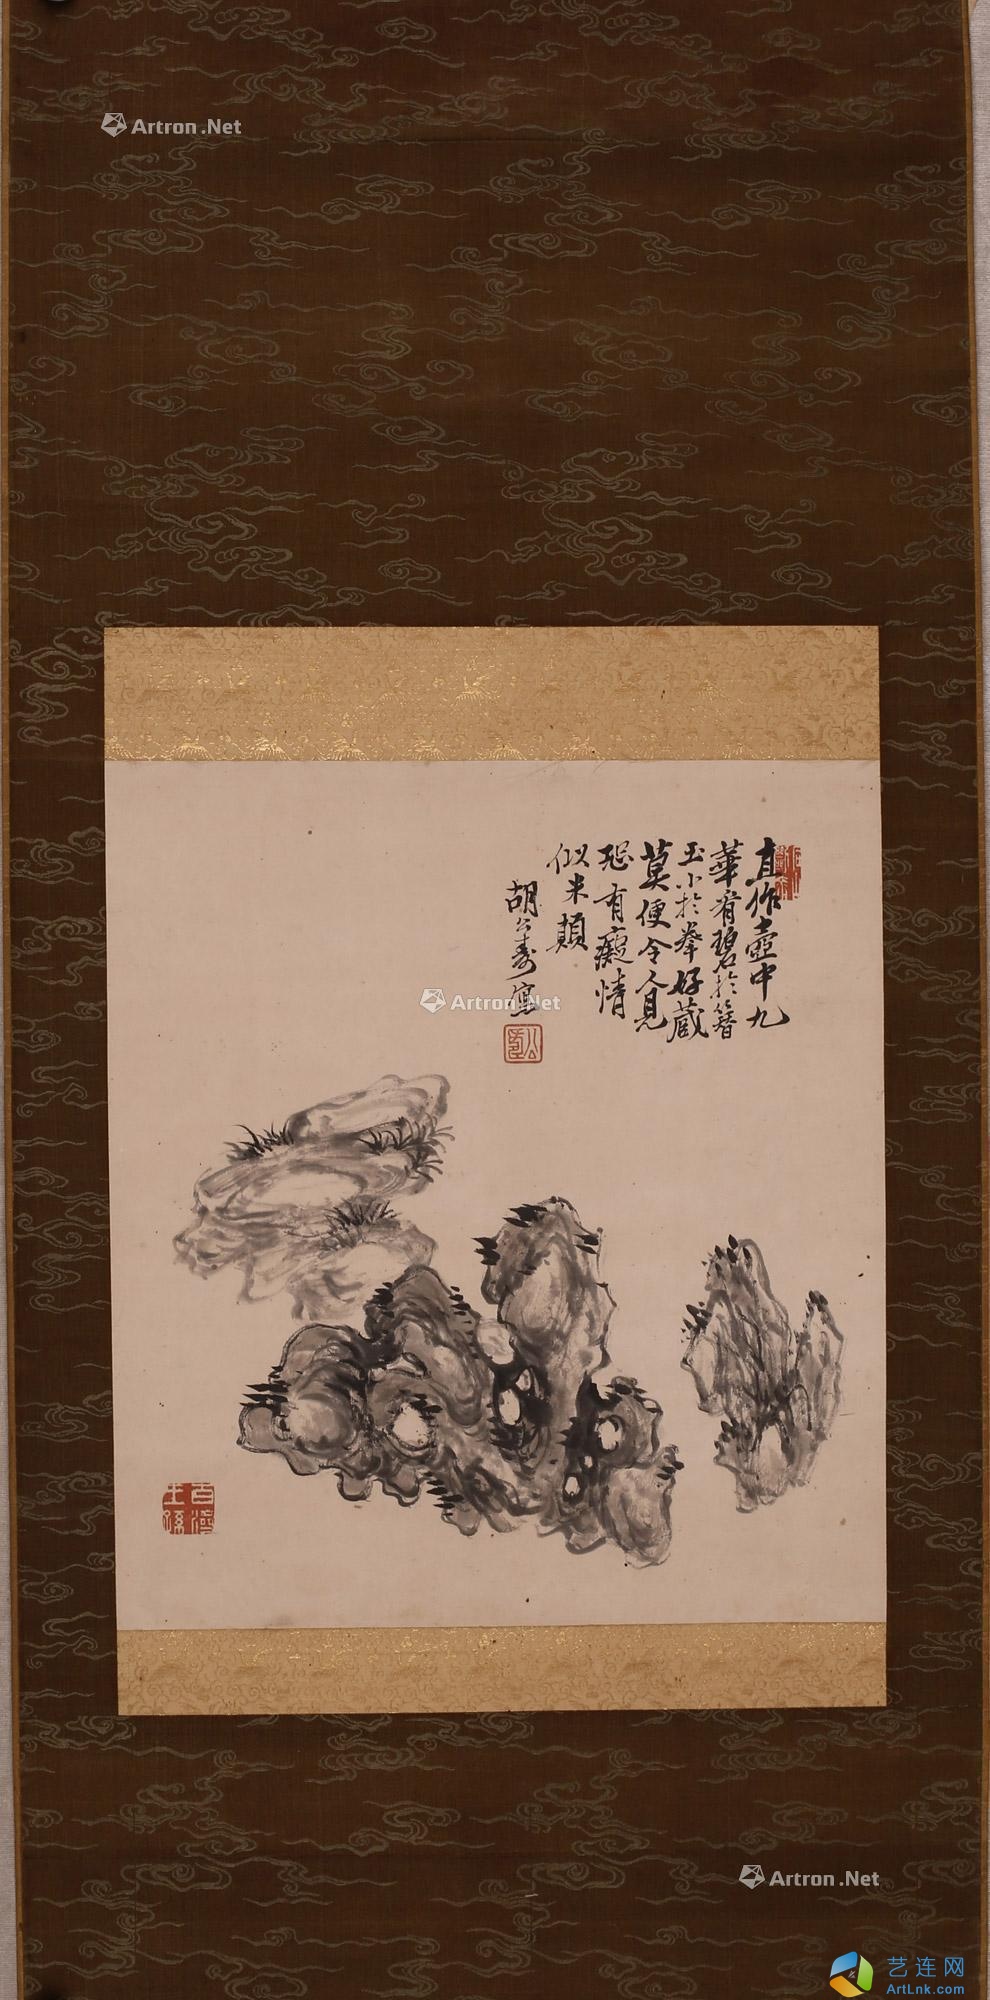 Artron.Net
直作壺中九
華看碧於簪
玉小於拳好藏
莫便令人見
恐有癡情
似米顛
胡公壽寫
Artron.Net
Artron.Net
艺连网
ArtLnk.com